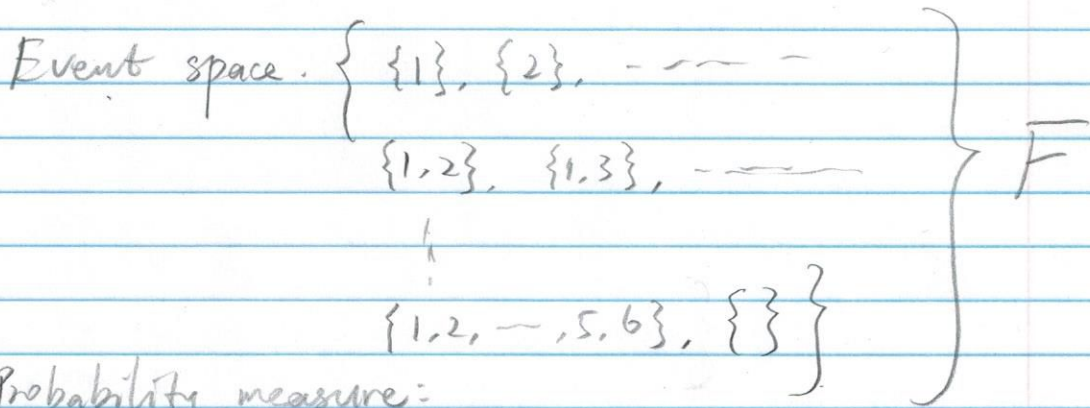 Event space. { {1}, {2}, ----
{1,2}, {1,3}, ----
{1,2, --- ,5,6}, {} } } F
Probability measure: